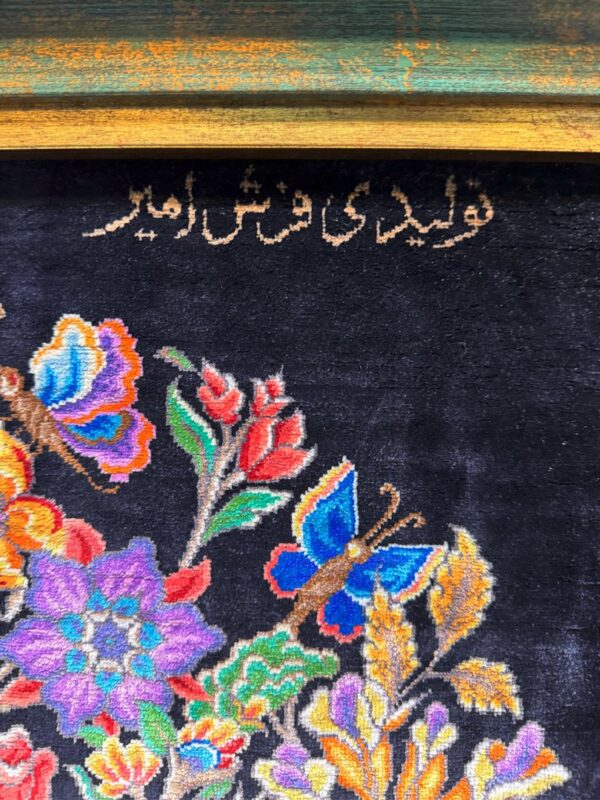 تولیدی فرش امیر